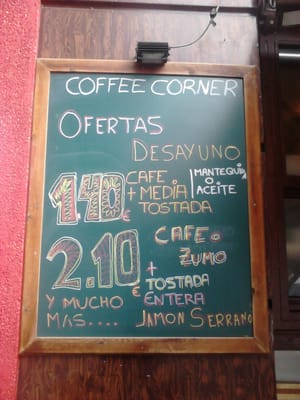 COFFEE CORNER
OFERTAS
DESAYUNO
1.40€ CAFE + MEDIA TOSTADA
MANTEQUILLA O ACEITE
2.10€ CAFE O ZUMO
+ TOSTADA ENTERA
Y MUCHO MAS....
JAMON SERRANO